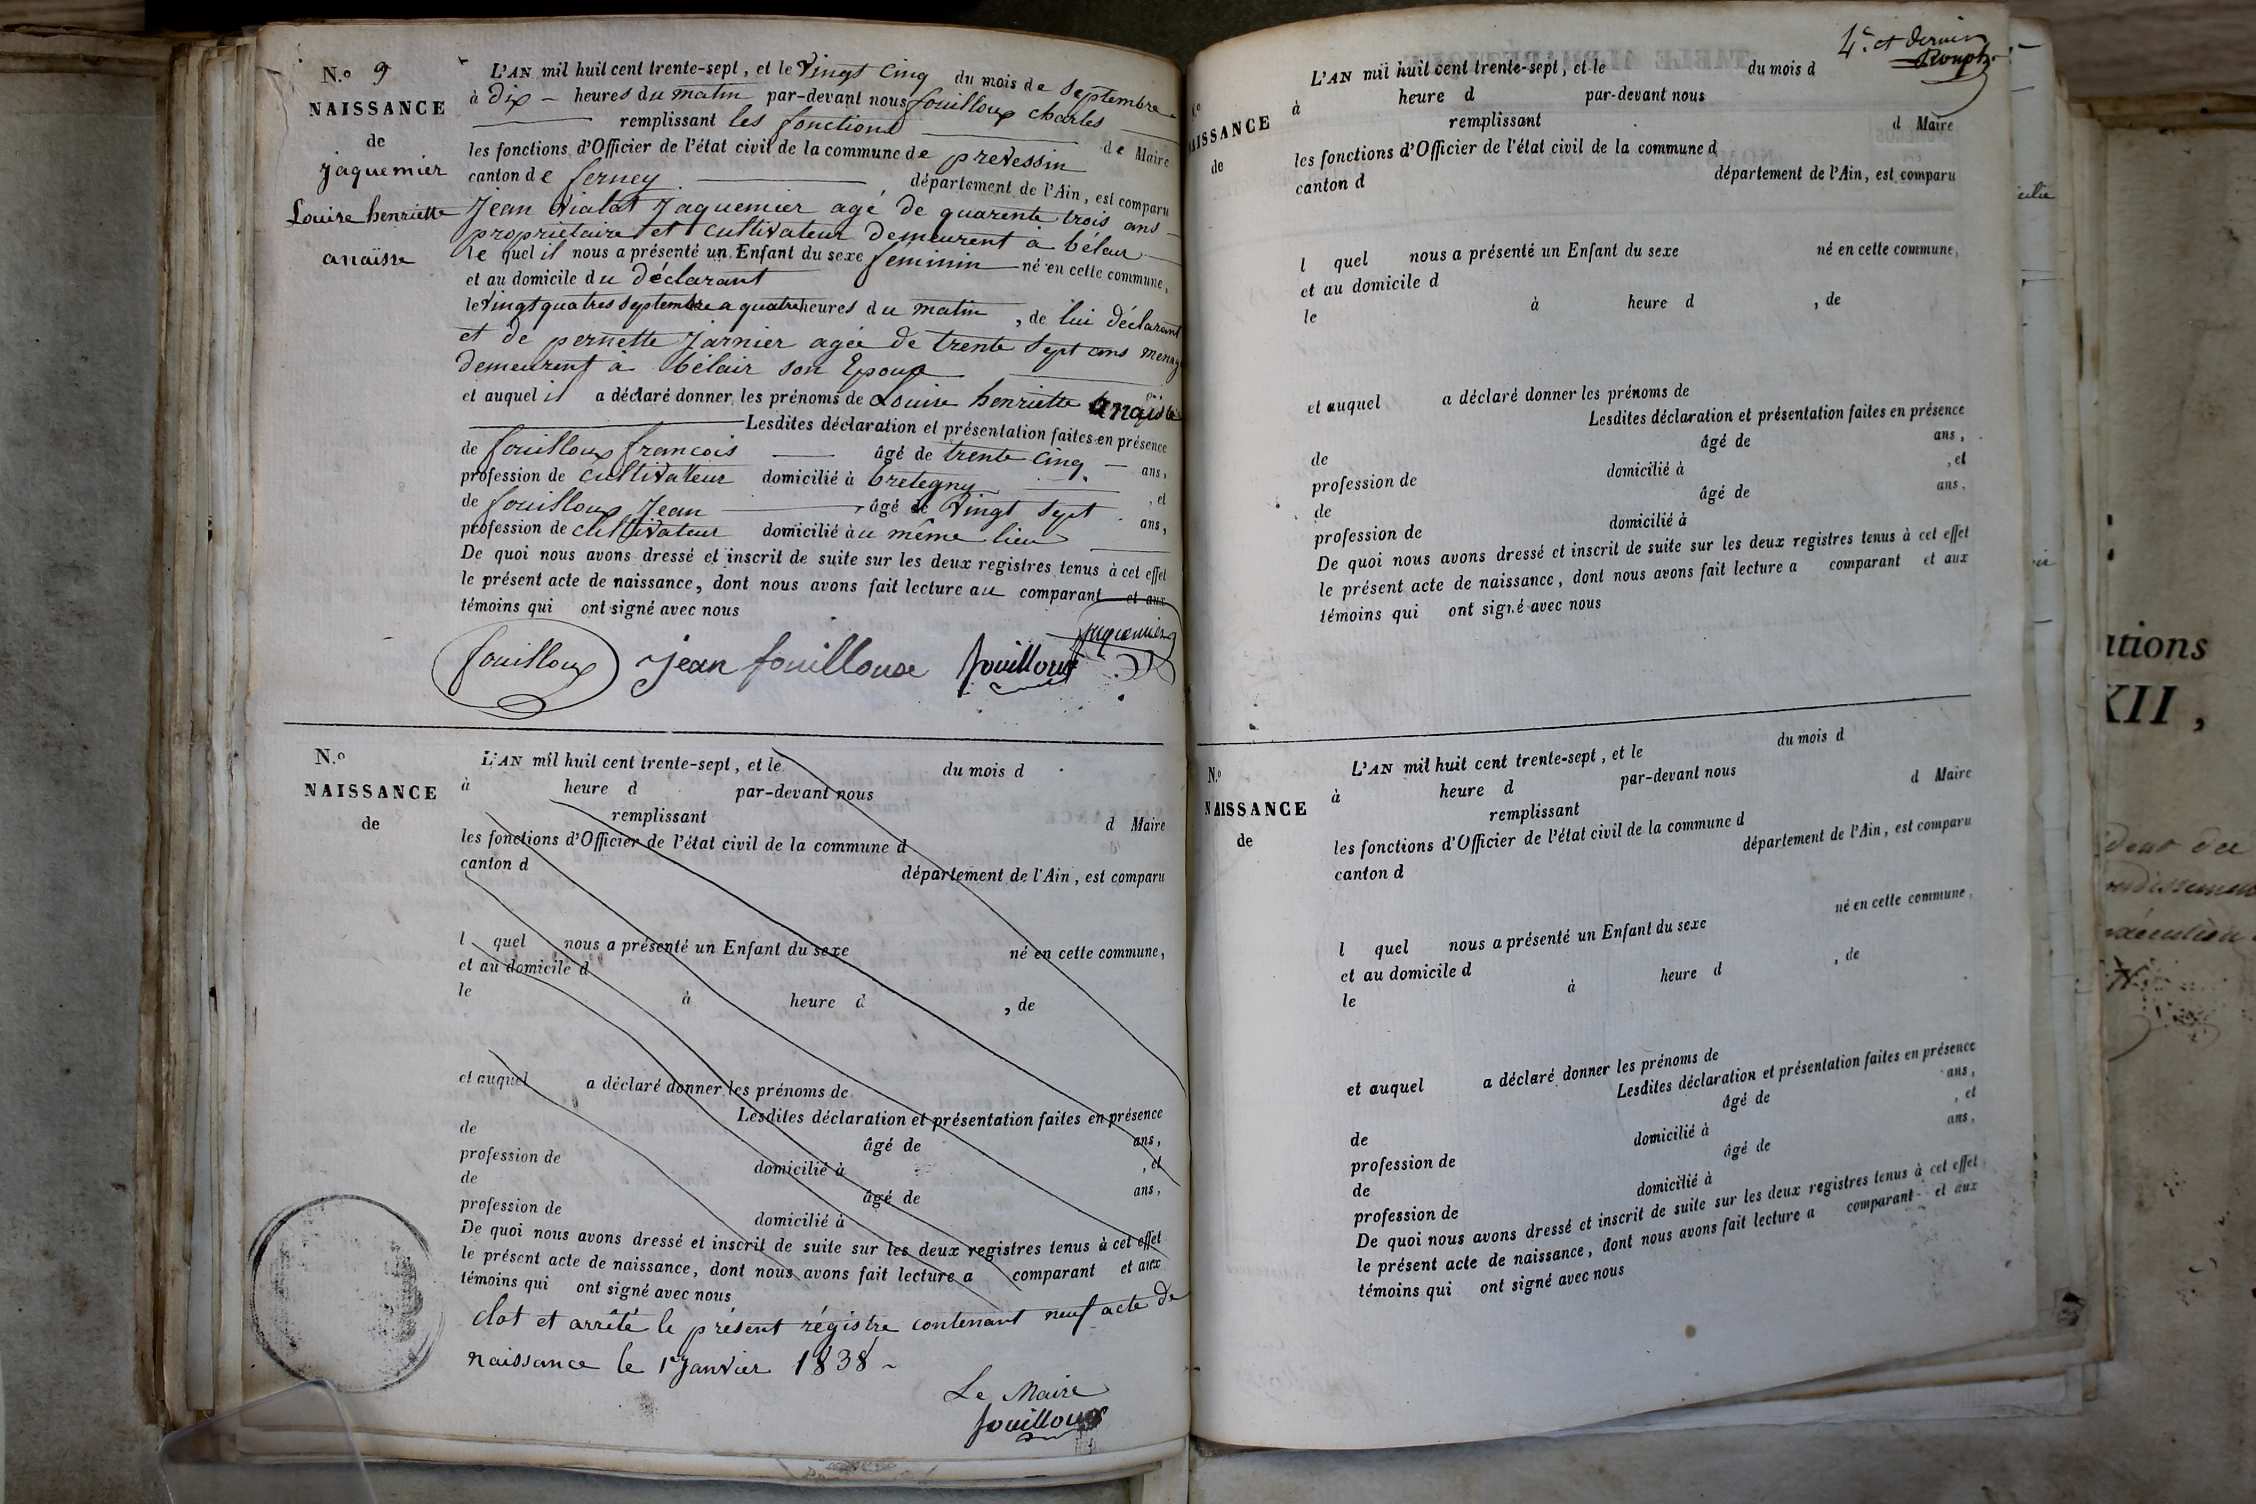 N.º 9
NAISSANCE
de
jaquemier
Louise henriette
anaïsse
L'AN mil huit cent trente-sept, et le vingt cinq du mois de septembre
à dix – heures du matin par-devant nous fouilloux charles
remplissant les fonctions de Maire
les fonctions d'Officier de l'état civil de la commune de prevessin
canton de ferney département de l'Ain, est comparu
jean jaquemier agé de quarente trois ans
propriétaire et cultivateur demeurent à bélair
le quel il nous a présenté un Enfant du sexe feminin né en cette commune,
et au domicile du déclarant
le vingt quatres septembre a quatre heures du matin, de lui déclarant
et de pernette jarnier agée de trente sept ans
demeurent à bélair son Epouse
et auquel il a déclaré donner les prénoms de Louise henriette anaïsse
Lesdites déclaration et présentation faites en présence
de fouilloux francois âgé de trente cinq – ans,
profession de cultivateur domicilié à bretegny, et
de fouilloux jean âgé de vingt sept ans,
profession de cultivateur domicilié au même lieu
De quoi nous avons dressé et inscrit de suite sur les deux registres tenus à cet effet
le présent acte de naissance, dont nous avons fait lecture au comparant et aux
témoins qui ont signé avec nous
jaquemier
fouilloux jean fouilloux fouilloux
N.º
NAISSANCE
de
L'AN mil huit cent trente-sept, et le du mois d
à heure d par-devant nous
remplissant d Maire
les fonctions d'Officier de l'état civil de la commune d
canton d département de l'Ain, est comparu
l quel nous a présenté un Enfant du sexe né en cette commune,
et au domicile d
le à heure d , de
et auquel a déclaré donner les prénoms de
Lesdites déclaration et présentation faites en présence
de âgé de ans,
profession de domicilié à , et
de âgé de ans,
profession de domicilié à
De quoi nous avons dressé et inscrit de suite sur les deux registres tenus à cet effet
le présent acte de naissance, dont nous avons fait lecture a comparant et aux
témoins qui ont signé avec nous
clot et arrêté le présent régistre contenant neuf acte de
naissance le 1er janvier 1838 ~
Le Maire
fouilloux
4e et dernier
N.º
NAISSANCE
de
L'AN mil huit cent trente-sept, et le du mois d
à heure d par-devant nous
remplissant d Maire
les fonctions d'Officier de l'état civil de la commune d
canton d département de l'Ain, est comparu
l quel nous a présenté un Enfant du sexe né en cette commune,
et au domicile d
le à heure d , de
et auquel a déclaré donner les prénoms de
Lesdites déclaration et présentation faites en présence
de âgé de ans,
profession de domicilié à , et
de âgé de ans,
profession de domicilié à
De quoi nous avons dressé et inscrit de suite sur les deux registres tenus à cet effet
le présent acte de naissance, dont nous avons fait lecture a comparant et aux
témoins qui ont signé avec nous
N.º
NAISSANCE
de
L'AN mil huit cent trente-sept, et le du mois d
à heure d par-devant nous
remplissant d Maire
les fonctions d'Officier de l'état civil de la commune d
canton d département de l'Ain, est comparu
l quel nous a présenté un Enfant du sexe né en cette commune,
et au domicile d
le à heure d , de
et auquel a déclaré donner les prénoms de
Lesdites déclaration et présentation faites en présence
de âgé de ans,
profession de domicilié à , et
de âgé de ans,
profession de domicilié à
De quoi nous avons dressé et inscrit de suite sur les deux registres tenus à cet effet
le présent acte de naissance, dont nous avons fait lecture a comparant et aux
témoins qui ont signé avec nous
ations
XII,